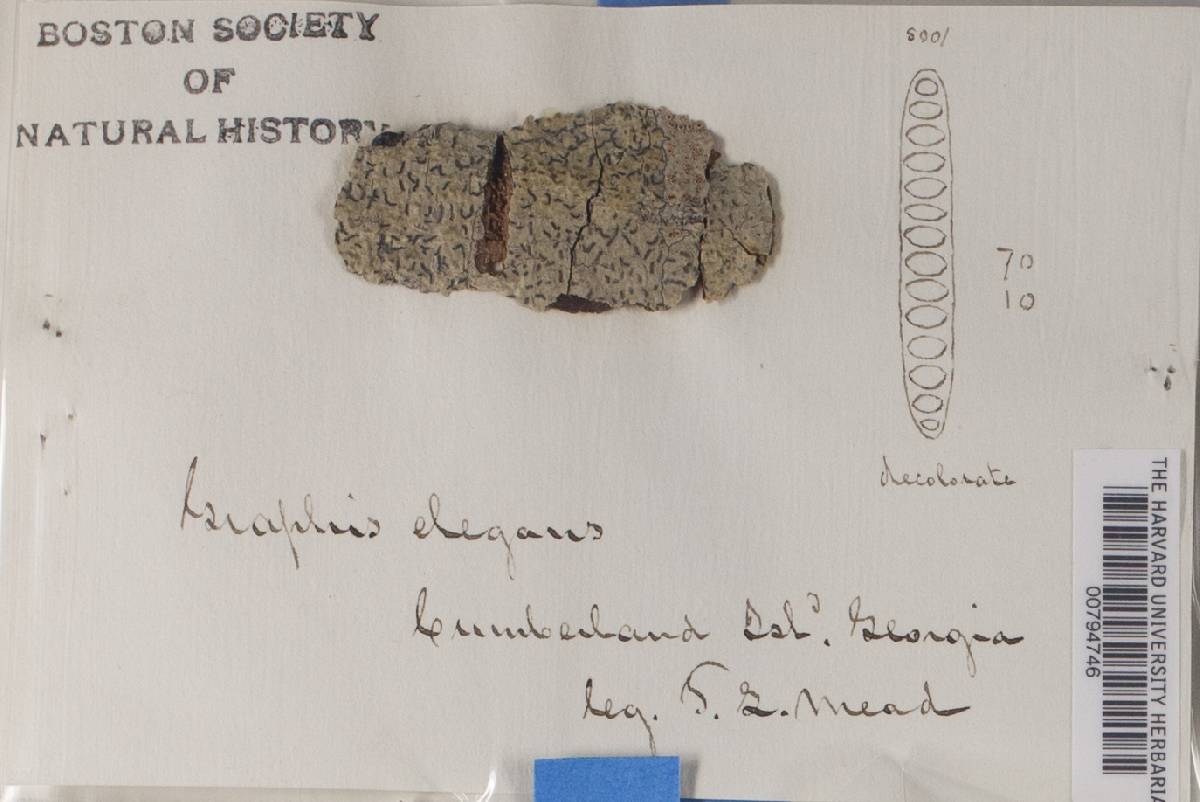 BOSTON SOCIETY
OF
NATURAL HISTORY
70
10
decolorate
Graphis elegans
Cumberland Isl^d. Georgia
leg. S. G. Mead
THE HARVARD UNIVERSITY HERBARIA
00794746